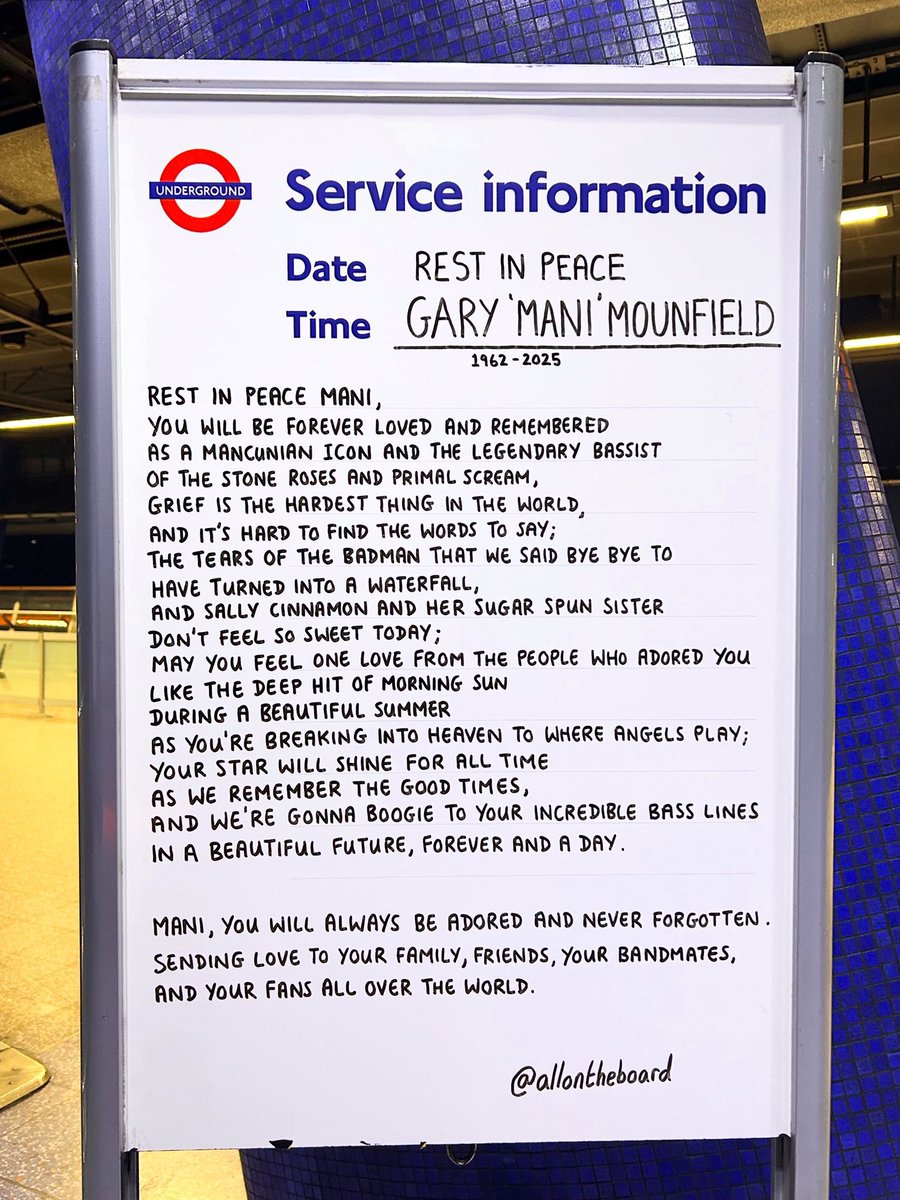 UNDERGROUND
Service information
Date REST IN PEACE
Time GARY 'MANI' MOUNFIELD
1962-2025
REST IN PEACE MANI,
YOU WILL BE FOREVER LOVED AND REMEMBERED
AS A MANCUNIAN ICON AND THE LEGENDARY BASSIST
OF THE STONE ROSES AND PRIMAL SCREAM,
GRIEF IS THE HARDEST THING IN THE WORLD,
AND IT'S HARD TO FIND THE WORDS TO SAY;
THE TEARS OF THE BADMAN THAT WE SAID BYE BYE TO
HAVE TURNED INTO A WATERFALL,
AND SALLY CINNAMON AND HER SUGAR SPUN SISTER
DON'T FEEL SO SWEET TODAY;
MAY YOU FEEL ONE LOVE FROM THE PEOPLE WHO ADORED YOU
LIKE THE DEEP HIT OF MORNING SUN
DURING A BEAUTIFUL SUMMER
AS YOU'RE BREAKING INTO HEAVEN TO WHERE ANGELS PLAY;
YOUR STAR WILL SHINE FOR ALL TIME
AS WE REMEMBER THE GOOD TIMES,
AND WE'RE GONNA BOOGIE TO YOUR INCREDIBLE BASS LINES
IN A BEAUTIFUL FUTURE, FOREVER AND A DAY.
MANI, YOU WILL ALWAYS BE ADORED AND NEVER FORGOTTEN.
SENDING LOVE TO YOUR FAMILY, FRIENDS, YOUR BANDMATES,
AND YOUR FANS ALL OVER THE WORLD.
@allontheboard